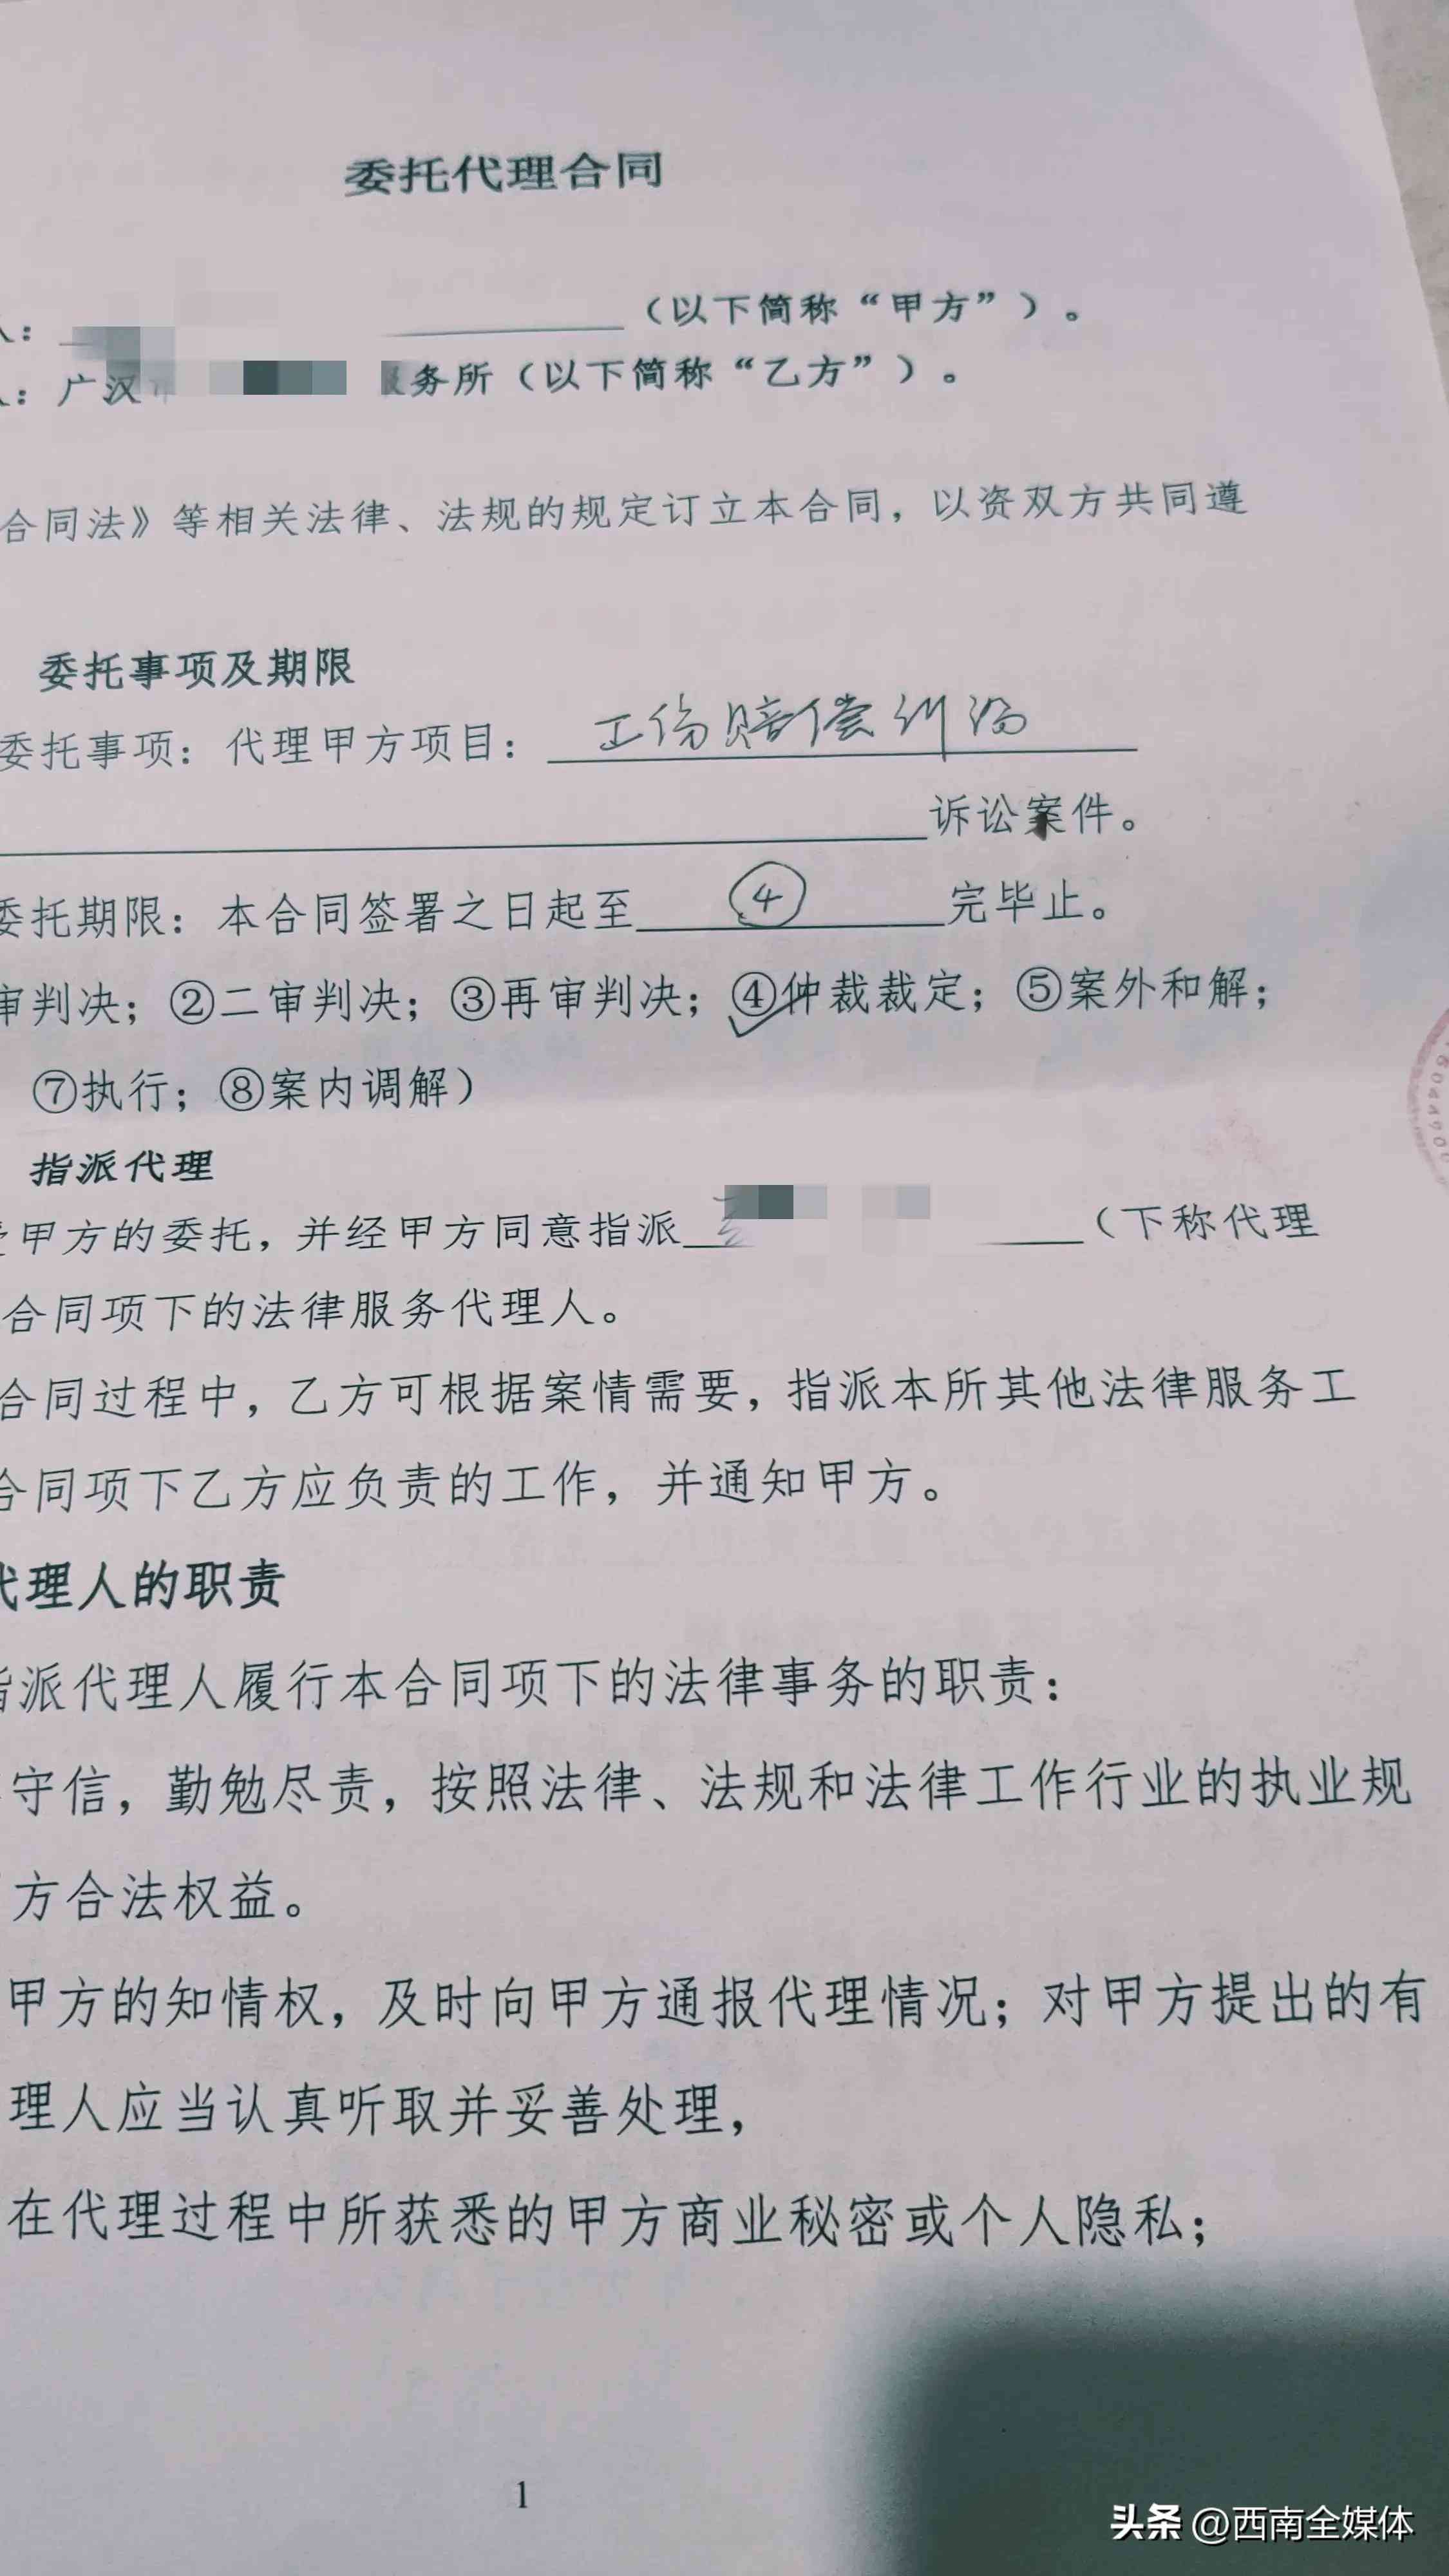 委托代理合同
人：（以下简称“甲方”）。
人：广汉 务所（以下简称“乙方”）。
合同法》等相关法律、法规的规定订立本合同，以资双方共同遵
委托事项及期限
委托事项：代理甲方项目：工伤赔偿纠纷
诉讼案件。
委托期限：本合同签署之日起至④完毕止。
审判决；②二审判决；③再审判决；④仲裁裁定；⑤案外和解；
⑦执行；⑧案内调解）
指派代理
甲方的委托，并经甲方同意指派（下称代理
合同项下的法律服务代理人。
合同过程中，乙方可根据案情需要，指派本所其他法律服务工
合同项下乙方应负责的工作，并通知甲方。
代理人的职责
指派代理人履行本合同项下的法律事务的职责：
守信，勤勉尽责，按照法律、法规和法律工作行业的执业规
方合法权益。
甲方的知情权，及时向甲方通报代理情况；对甲方提出的有
理人应当认真听取并妥善处理，
在代理过程中所获悉的甲方商业秘密或个人隐私；
1
头条 @西南全媒体